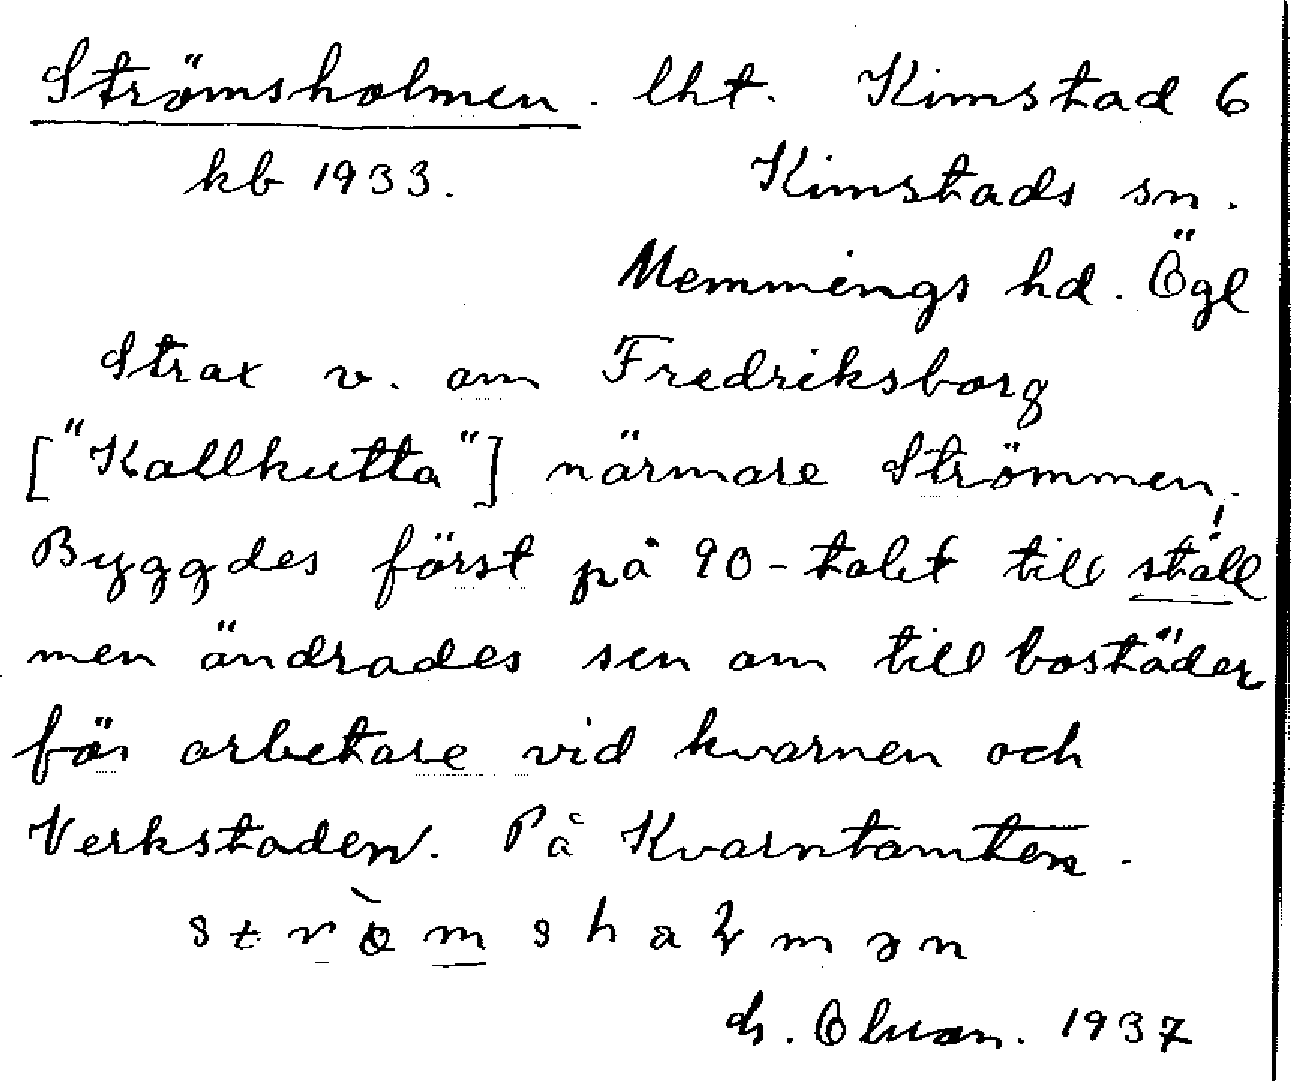 Strömsholmen. lht. Kimstad 6
kb 1933. Kimstads sn.
Memmings hd. Ögl
Strax v. om Fredriksborg
["Kallkutta"] närmare Strömmen.
Byggdes först på 90-talet till ställ!
men ändrades sen om till bostäder
för arbetare vid kvarnen och
Verkstaden. På Kvarntomten.
1937